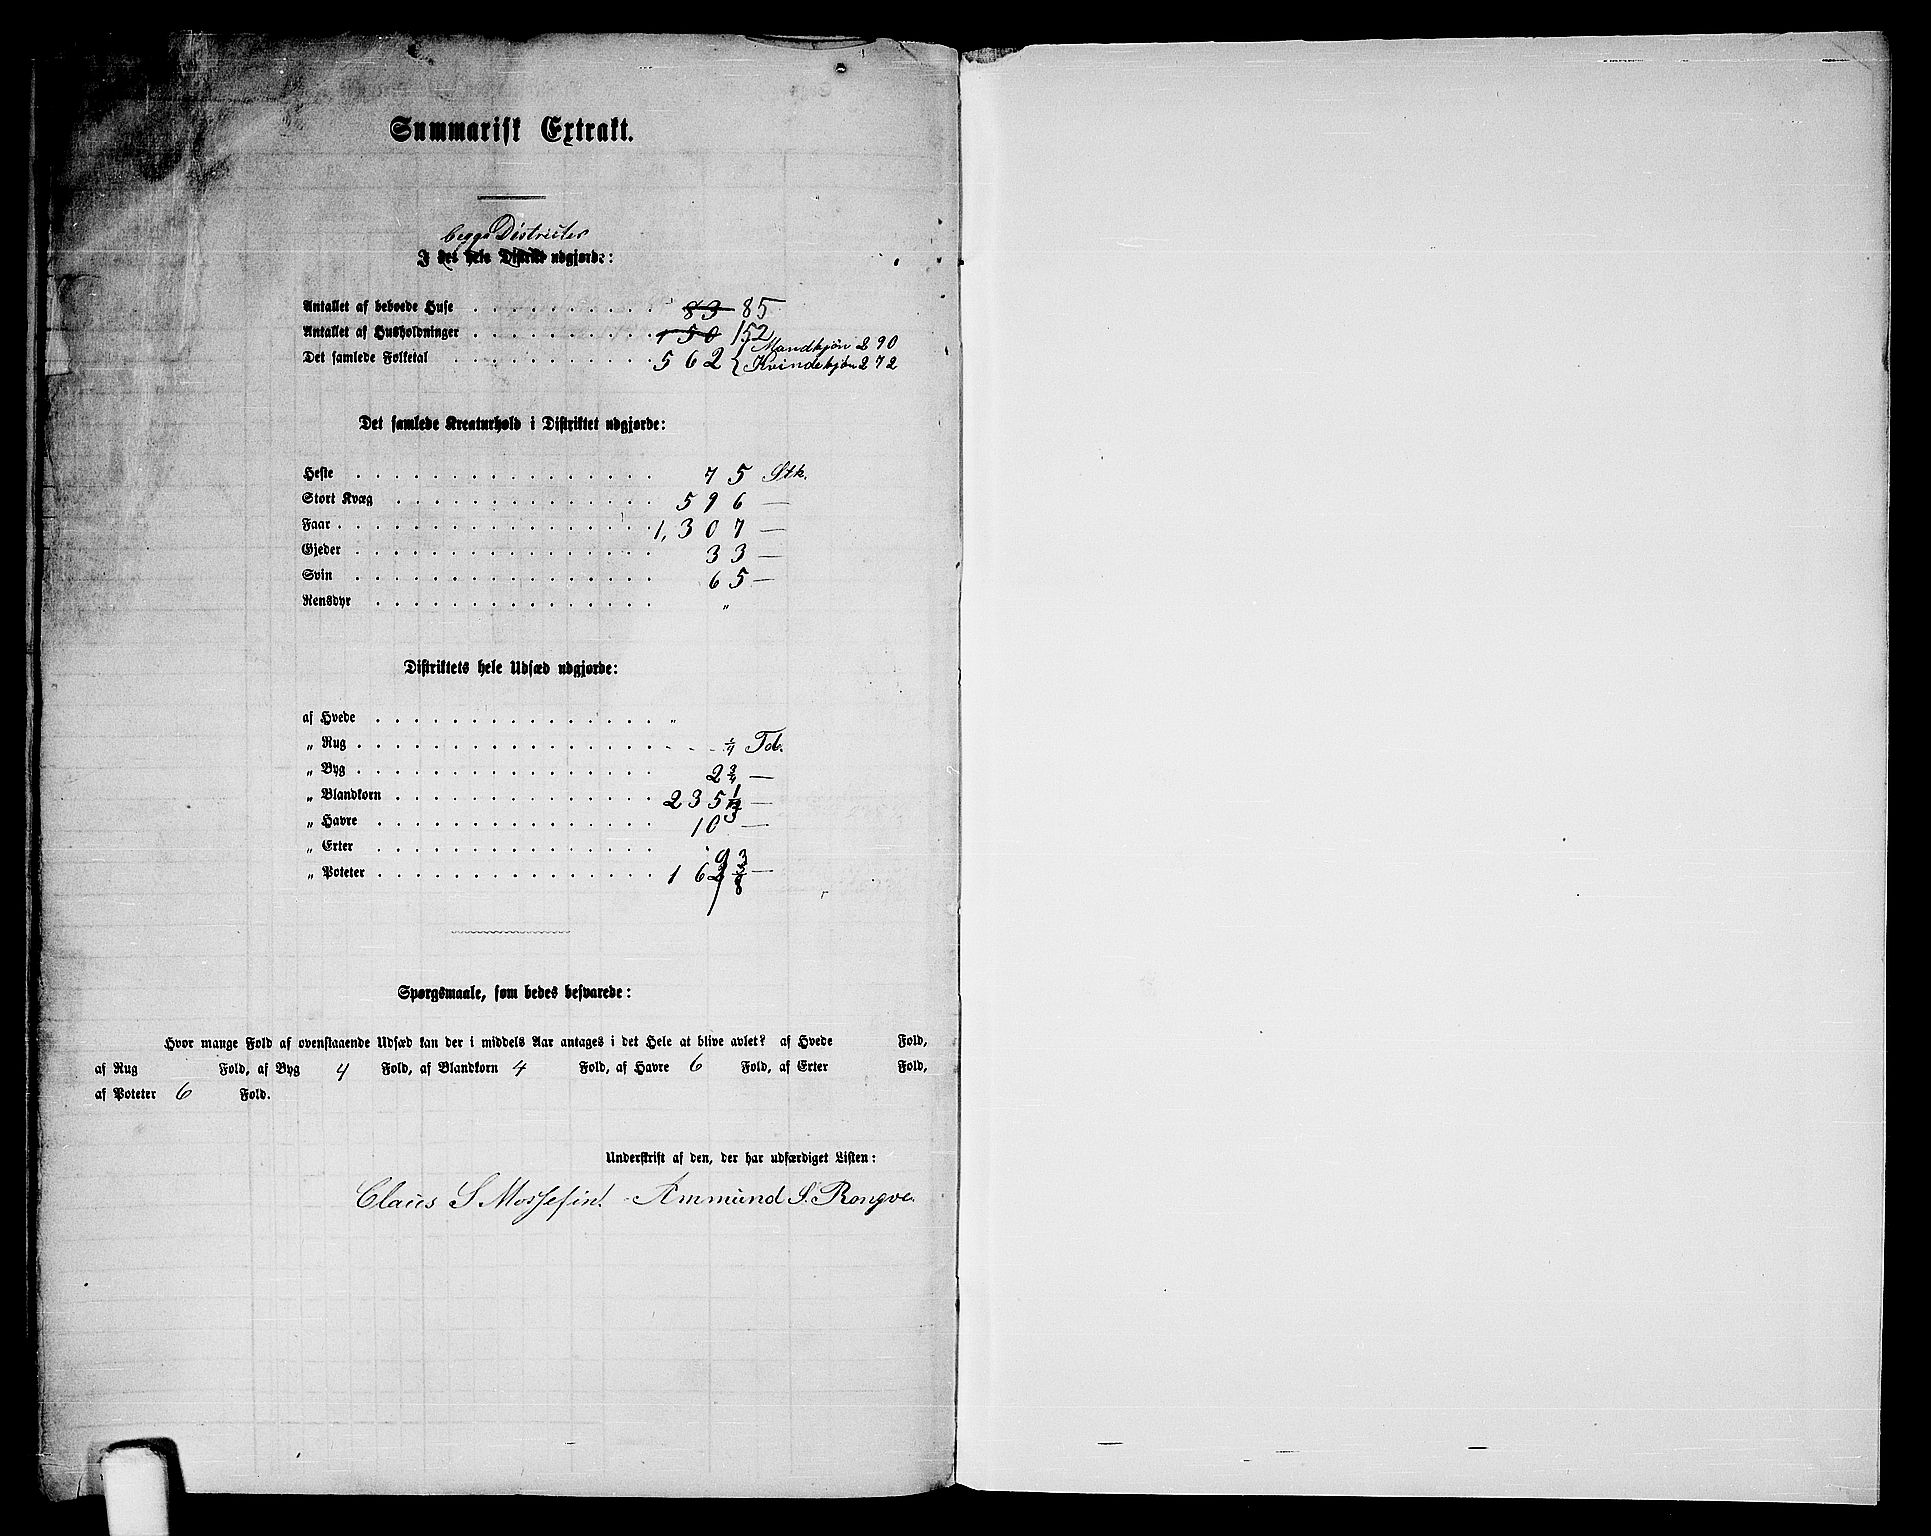 Summarisk Extrakt.
begge Districter
I det hele Distrikt udgjorde:
Antallet af beboede Huse 83 85
Antallet af Husholdninger 150 152
Det samlede Folketal 562 { Mandkjøn 290
Kvindekjøn 272
Det samlede Kreaturhold i Distriktet udgjorde:
Heste 75 Stk.
Stort Kvæg 596 —
Faar 1,307 —
Gjeder 33 —
Svin 65 —
Rensdyr "
Distriktets hele Udsæd udgjorde:
af Hvede "
„ Rug 1/4 Td.
„ Byg 2 3/4 —
„ Blandkorn 235
„ Havre 10 —
„ Erter
„ Poteter 16
Spørgsmaale, som bedes besvarede:
Hvor mange Fold af ovenstaaende Udsæd kan der i middels Aar antages i det Hele at blive avlet? af Hvede Fold,
af Rug Fold, af Byg 4 Fold, af Blandkorn 4 Fold, af Havre 6 Fold, af Erter Fold,
af Poteter 6 Fold.
Underskrift af den, der har udfærdiget Listen:
Claus S Mossefin. Ammund S. Rongve.